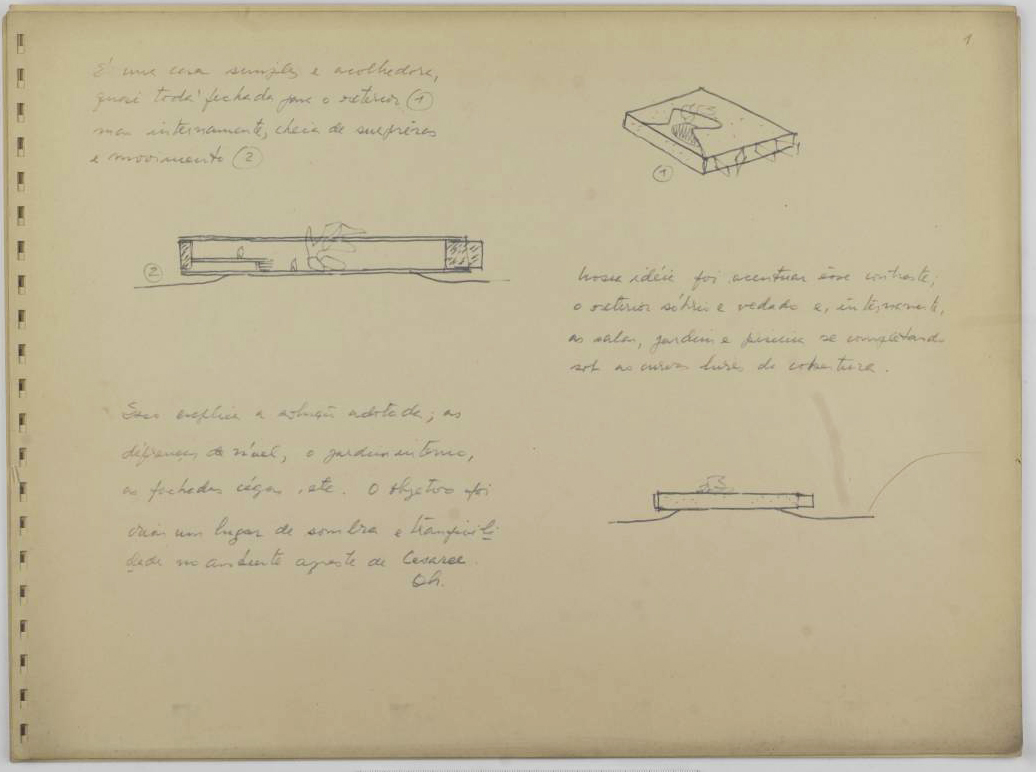 É uma casa simples e acolhedora,
quasi toda fechada para o exterior (1)
mas internamente, cheia de surprêsas
e movimento (2)
1
1
2
Nossa idéia foi acentuar êsse contraste;
o exterior sóbrio e vedado e, internamente,
as salas, jardim e piscina se completando
sob as curvas livres da cobertura.
Isso explica a solução adotada; as
diferenças de nível, o jardim interno,
as fachadas cégas, etc. O objetivo foi
criar um lugar de sombra e tranquili
dade no ambiente agreste de Cesarea.